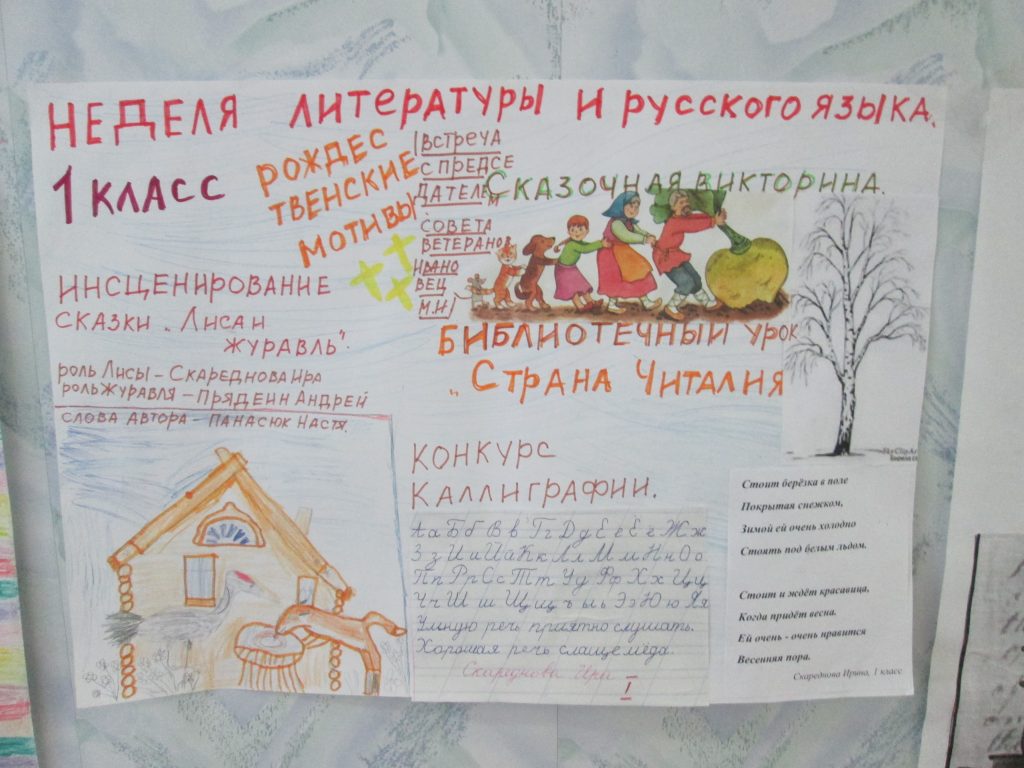 НЕДЕЛЯ ЛИТЕРАТУРЫ И РУССКОГО ЯЗЫКА.
1 КЛАСС
РОЖДЕС
ТВЕНСКИЕ
МОТИВЫ
ВСТРЕЧА
С ПРЕДСЕ
ДАТЕЛЕМ
СОВЕТА
ВЕТЕРАНОВ
ИВАНО
ВЕЦ
М.И.
СКАЗОЧНАЯ ВИКТОРИНА.
ИНСЦЕНИРОВАНИЕ
СКАЗКИ „ЛИСА И
ЖУРАВЛЬ".
РОЛЬ ЛИСЫ – СКАРЕДНОВА ИРА
РОЛЬ ЖУРАВЛЯ – ПРЯДЕИН АНДРЕЙ
СЛОВА АВТОРА – ПАНАСЮК НАСТЯ.
БИБЛИОТЕЧНЫЙ УРОК
„СТРАНА ЧИТАЛИЯ
КОНКУРС
КАЛЛИГРАФИИ.
Аа Бб Вв Гг Дд Ее Ёё Жж
Зз Ии Йй Кк Лл Мм Нн Оо
Пп Рр Сс Тт Уу Фф Хх Цц
Чч Шш Щщ ъ ы ь Ээ Юю Яя
Умную речь приятно слушать.
Хорошая речь слаще мёда.
Скареднова Ира
I
Стоит берёзка в поле
Покрытая снежком,
Зимой ей очень холодно
Стоять под белым льдом.
Стоит и ждёт красавица,
Когда придёт весна.
Ей очень - очень нравится
Весенняя пора.
Скареднова Ирина, 1 класс